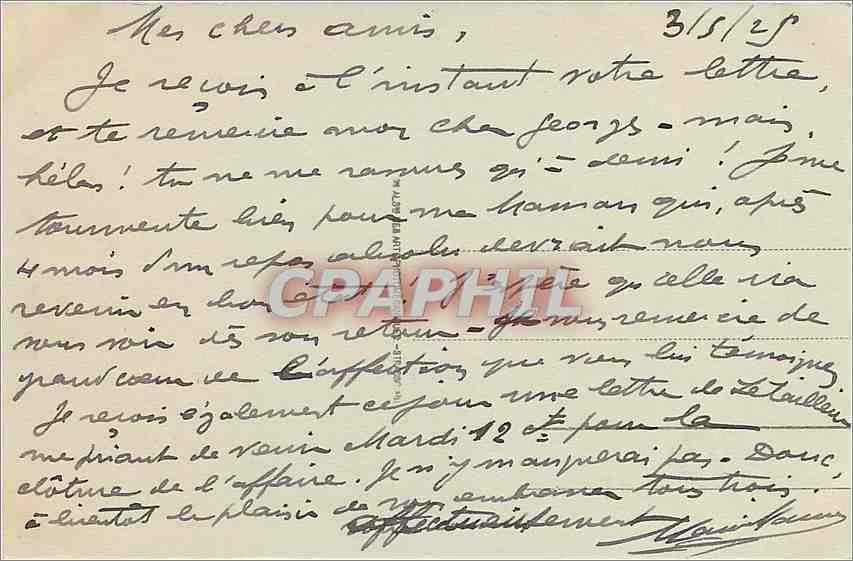 Mes chers amis, 3/5/25
Je reçois à l'instant votre lettre,
et te remercie mon cher Georges - mais,
hélas! tu ne me rassures qu'à demi! Je me
tourmente bien pour ma Maman qui, après
4 mois d'un repos absolu devrait nous
revenir en bon état! J'espère qu'elle ira
vous voir dès son retour - Je vous remercie de
grand coeur de l'affection que vous lui témoignez
Je reçois également ce jour une lettre de Letailleur
me priant de venir Mardi 12 ct pour la
clôture de l'affaire. Je n'y manquerai pas - Donc,
à bientôt le plaisir de vous embrasser tous trois!
affectueusement
CPAPHIL